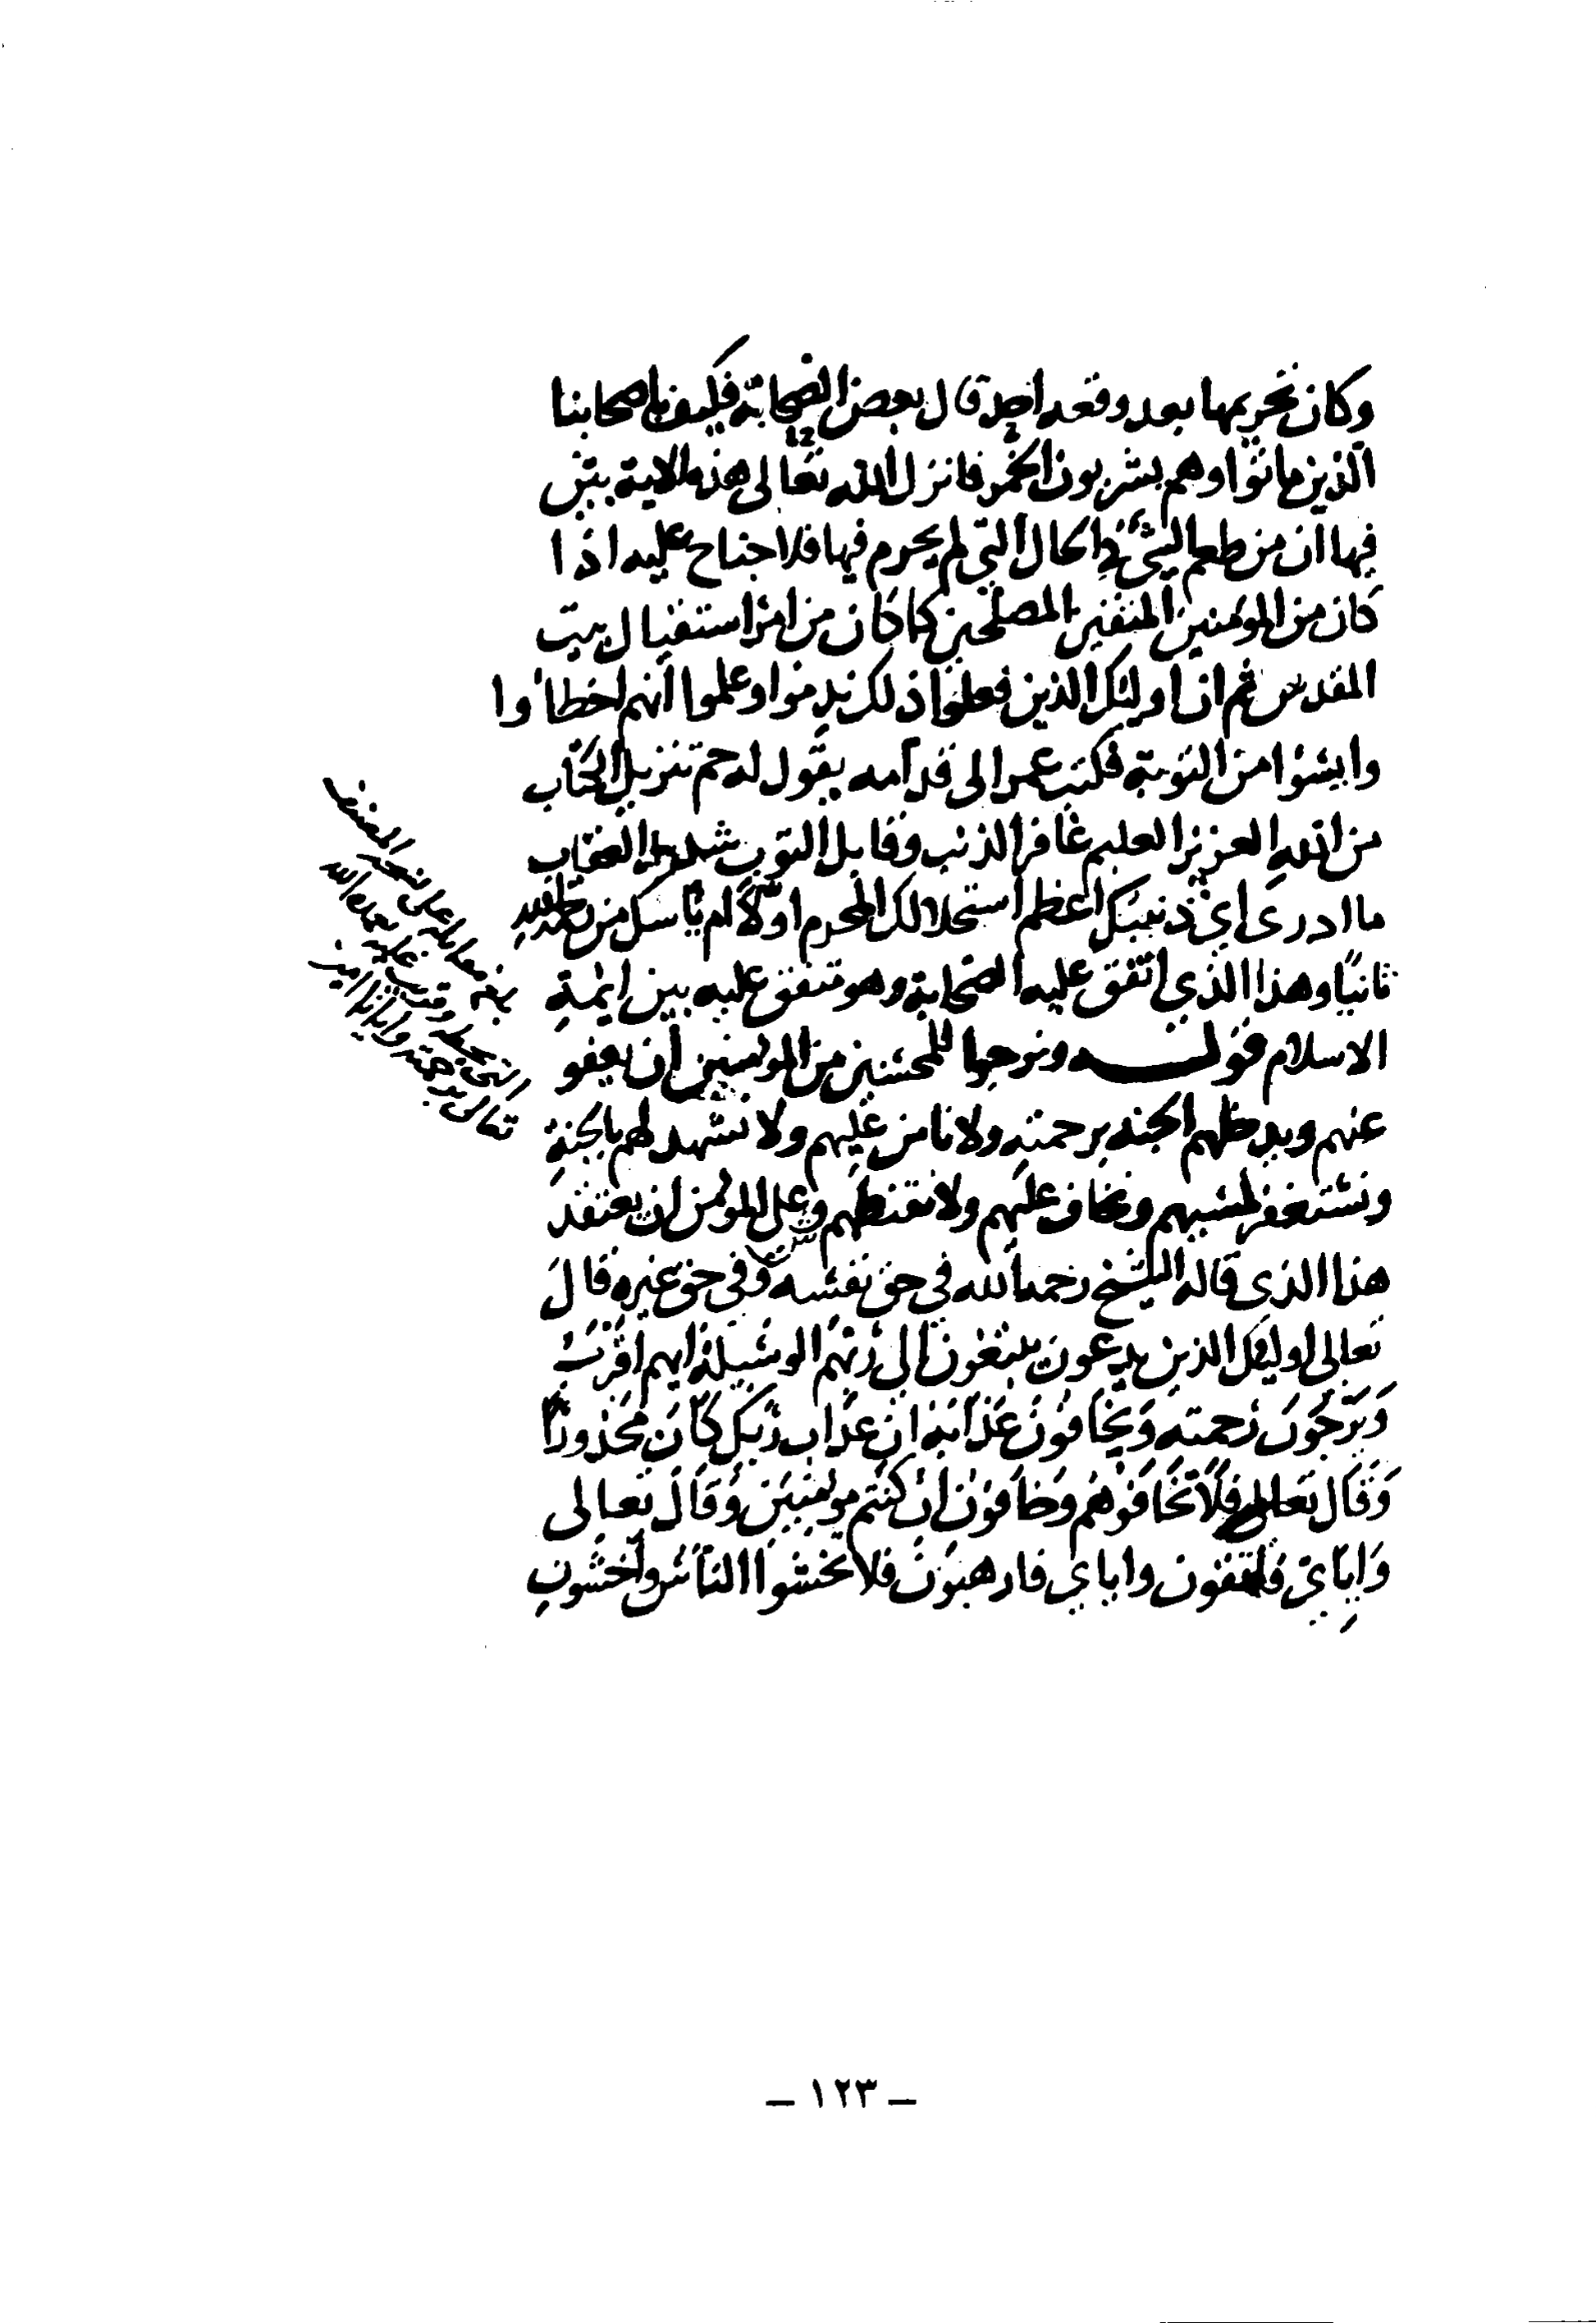 وكان تحريمها بعد وقعة احد قال بعض الصحابة فكيف باصحابنا
الذين ماتوا وهم يشربون الخمر فانزل الله تعالى هذه الاية بين
فيها ان من طعم الشئ في الحال التي لم يحرم فيها فلا جناح عليه اذا
كان من المؤمنين المتقين المصلحين كما كان من امر استقبال بيت
المقدس ثم ان اوليك الذين فعلوا ذلك ندموا وعلموا انهم اخطاوا
وايسوا من التوبة فكتب عمر الى قدامه يقول له حم تنزيل الكتاب
من الله العزيز العليم غافر الذنب وقابل التوب شديد العقاب
ما ادري اي ذنبيك اعظم استحلالك المحرم اولا ام ياسك من رحمة الله
ثانيا وهذا الذي اتفق عليه الصحابة وهو متفق عليه بين ايمة
الاسلام قوله ونرجوا للمحسنين من المومنين ان يعفو
عنهم ويدخلهم الجنة برحمته ولا نامن عليهم ولا نشهد لهم بالجنة
ونستغفر لمسيهم ونخاف عليهم ولا نقنطهم وعلى المومن ان يعتقد
هذا الذي قاله الشيخ رحمه الله في حق نفسه وفي حق غيره قال
تعالى اوليك الذين يدعون يبتغون الى ربهم الوسيلة ايهم اقرب
ويرجون رحمته ويخافون عذابه ان عذاب ربك كان محذورا
وقال تعالى فلا تخافوهم وخافون ان كنتم مومنين وقال تعالى
واياي فاتقون واياي فارهبون فلا تخشوا الناس واخشون
– ١٢٣ –